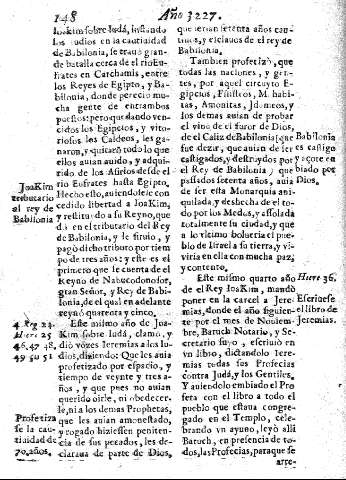 148
Año 3227.
Ioakim sobre Iudá, instando
los Iudios en la cautiuidad
de Babilonia, se trauó gran-
de batalla cerca de el rio Eu-
frates en Carchamis, entre
los Reyes de Egipto, y Ba-
bilonia, donde perecio mu-
cha gente de entrambos
puestos: pero quedando ven-
cidos los Egipcios, y vito-
riosos los Caldeos, les ga-
naron, y quitarõ todo lo que
ellos auian auido, y adqui-
rido de los Asirios desde el
rio Eufrates hasta Egipto,
Hecho esto, auiendosele con
cedido libertad a Ioakim,
y restituido a su Reyno, que
dó en el tributario del Rey
de Babilonia, y le siruio, y
pagò dicho tributo por tiem
po de tres años: y este es el
primero que se cuenta de el
Reyno de Nabucodonosor,
gran Señor, y Rey de Babi-
lonia, de el qual en adelante
reynó quarenta y cinco.
Este mismo año de Joa-
Kim sobre Iudá, clamó, y
dió vozes Ieremias a los Iu-
dios, diziendo: Que les auia
profetizado por espacio, y
tiempo de veynte y tres a-
ños, y que pues no auian
querido oirle, ni obedecer-
le, ni a los demas Prophetas,
que les auian amonestado,
y rogado hiziessen peniten-
cia de sus pecados, les de-
claraua de parte de Dios,
JoaKim
tributario
al rey de
Babilonia
4. Reg 24.
Hiere 25
46. 47. 48,
49 50 51
Profetiza
se la cau-
tiuidad de
70. años.
que serian setenta años cau-
tiuos, y esclauos de el rey de
Babilonia.
Tambien profetizò, que
todas las naciones, y gen-
tes, por aquel circuyto E-
gipcios, Filisteos, Mohabi-
tas, Amonitas, Idumeos, y
los demas auian de prouar
el vino de el furor de Dios,
de el Caliz de Babilonia; que
fue dezir, que auian de ser
castigados, y destruydos por
el Rey de Babilonia; y que
passados setenta años, auia
de ser esta Monarquia ani-
quilada, y deshecha de el to-
do por los Medos, y assolada
totalmente su ciudad, y que
a lo vltimo bolueria el pue-
blo de Israel a su tierra, y vi-
uiria en ella con mucha paz,
y contento.
Este mismo quarto año
de el Rey Joakim, mandò
poner en la carcel a Jere-
mias, donde el año siguien-
te por el mes de Nouiem-
bre, Baruch Notario, y Se-
cretario suyo, escriuiò en
vn libro, dictandolo Iere-
mias todas sus Profecias
contra Iudá, y los Gentiles,
Y auiendo embiado el Pro
feta con el libro a todo el
pueblo que estaua congre-
gado en el Templo, cele-
brando vn ayuno, leyò allí
Baruch, en presencia de to-
dos, las Profecias, para que se
arre-
Babilonia
es castigo
y açote en
biado por
Dios,
Hiere 36.
Escriuese
el libro de
Jeremias.